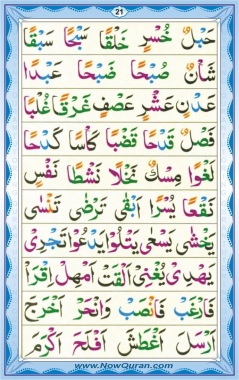 21
حَبْلٌ خُسْرٍ خَلْقًا سَبْحًا سَبْقًا
شَأْنٌ صُبْحًا ضَبْحًا عَبْدًا
عَدْنٍ عَشْرٍ عَصْفٍ غَرْقًا غُلْبًا
فَصْلٌ قَدْحًا قَضْبًا كَأْسًا كَدْحًا
لَغْوًا مِسْكٌ نَخْلًا نَشْطًا نَفْسٍ
نَقْعًا يُسْرًا اَبْقٰى تَرْضٰى تَنْسٰى
يَخْشٰى يَسْعٰى يَتْلُوْا يَدْعُوْا تَجْرِىْ
يَهْدِىْ يُغْنِىْ اَلْقَتْ اَمْهِلْ اِقْرَأْ
فَارْغَبْ فَانْصَبْ وَانْحَرْ اَخْرَجَ
اَرْسَلَ اَغْطَشَ اَفْلَحَ اَكْرَمَ
www.NowQuran.com